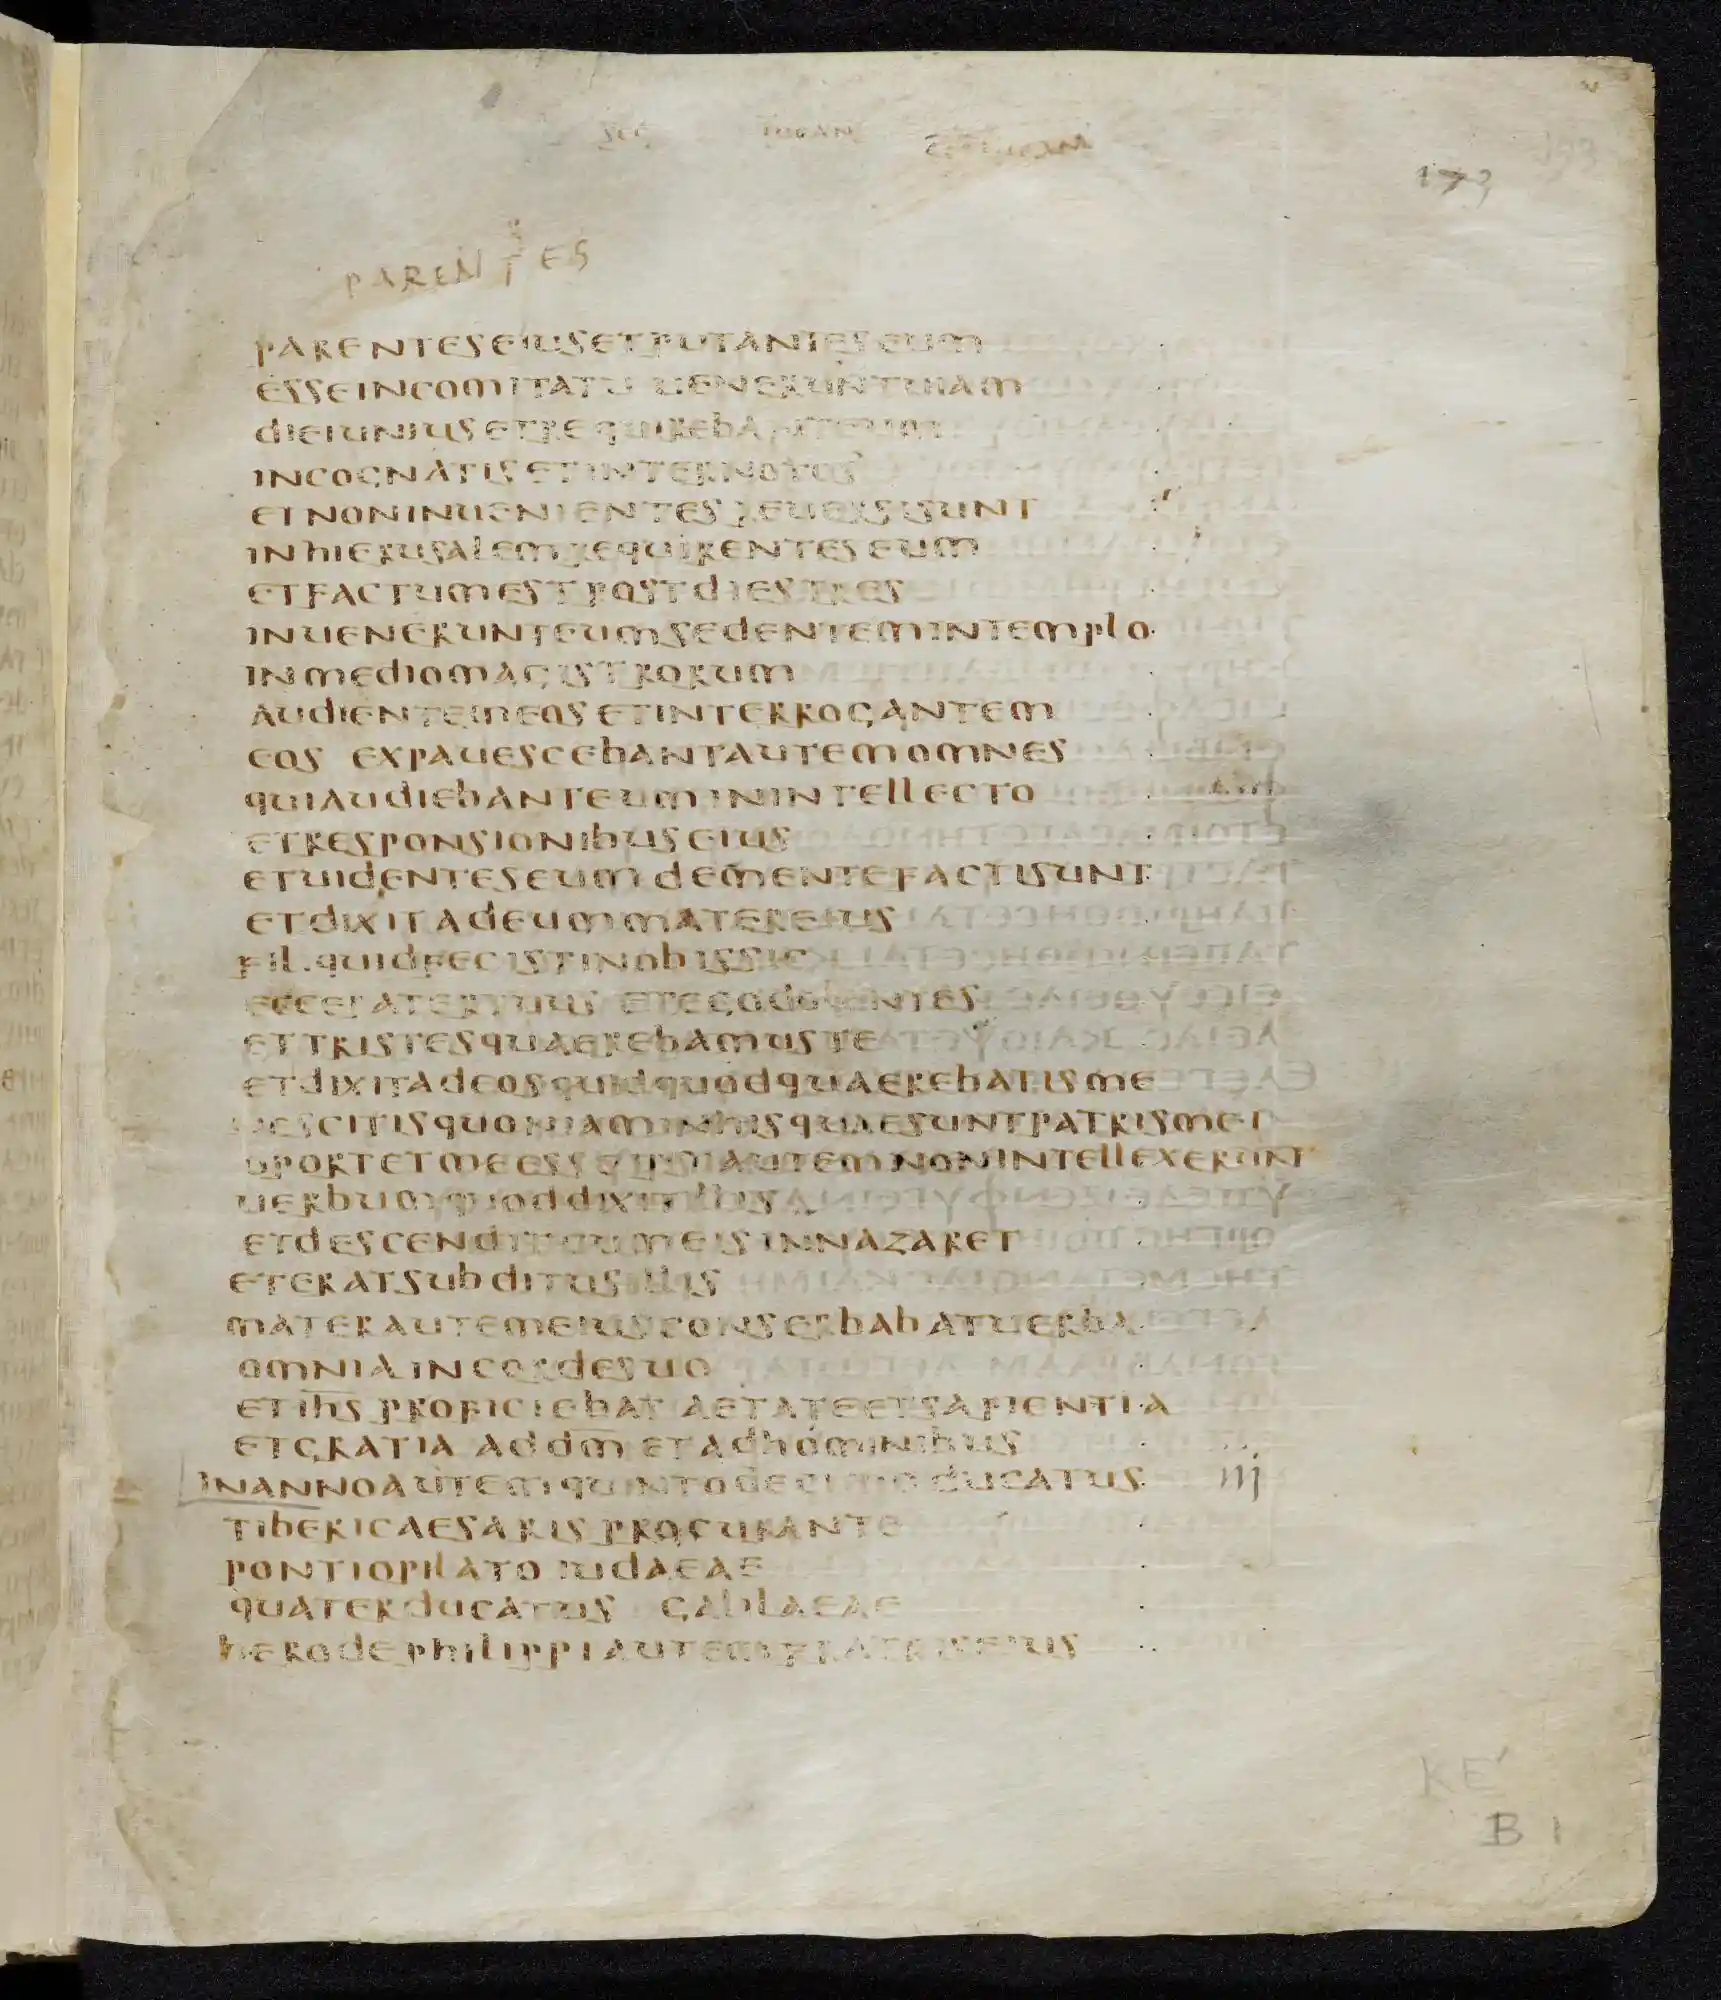 SEC LUCAN
173
PARENTES
PARENTES EIUS ET PUTANTES EUM
ESSE IN COMITATU UENERUNT UIAM
DIEI UNIUS ET REQUIREBANT EUM
IN COGNATIS ET INTER NOTOS
ET NON INUENIENTES REUERSI SUNT
IN HIERUSALEM REQUIRENTES EUM
ET FACTUM EST POST DIES TRES
INUENERUNT EUM SEDENTEM IN TEMPLO
IN MEDIO MAGISTRORUM
AUDIENTEM EOS ET INTERROGANTEM
EOS EXPAUESCEBANT AUTEM OMNES
QUI AUDIEBANT EUM IN INTELLECTO
ET RESPONSIONIBUS EIUS
ET UIDENTES EUM DEMENTE FACTI SUNT
ET DIXIT AD EUM MATER EIUS
FIL. QUID FECISTI NOBIS SIC
ECCE PATER TUUS ET EGO DOLENTES
ET TRISTES QUAEREBAMUS TE
ET DIXIT AD EOS QUID QUOD QUAEREBATIS ME
NESCITIS QUONIAM IN HIS QUAE SUNT PATRIS MEI
OPORTET ME ESSE IPSI AUTEM NON INTELLEXERUNT
UERBUM QUOD DIXIT ILLIS
ET DESCENDIT CUM EIS IN NAZARET
ET ERAT SUBDITUS ILLIS
MATER AUTEM EIUS CONSERBABAT UERBA
OMNIA IN CORDE SUO
ET IHS PROFICIEBAT AETATE ET SAPIENTIA
ET GRATIA AD DM ET AD HOMINIBUS
IN ANNO AUTEM QUINTODECIMO DUCATUS iij
TIBERI CAESARIS PROCURANTE
PONTIO PILATO IUDAEAE
QUATERDUCATUS GALILAEAE
HERODE PHILIPPI AUTEM FRATRIS EIUS
KE´
B 1